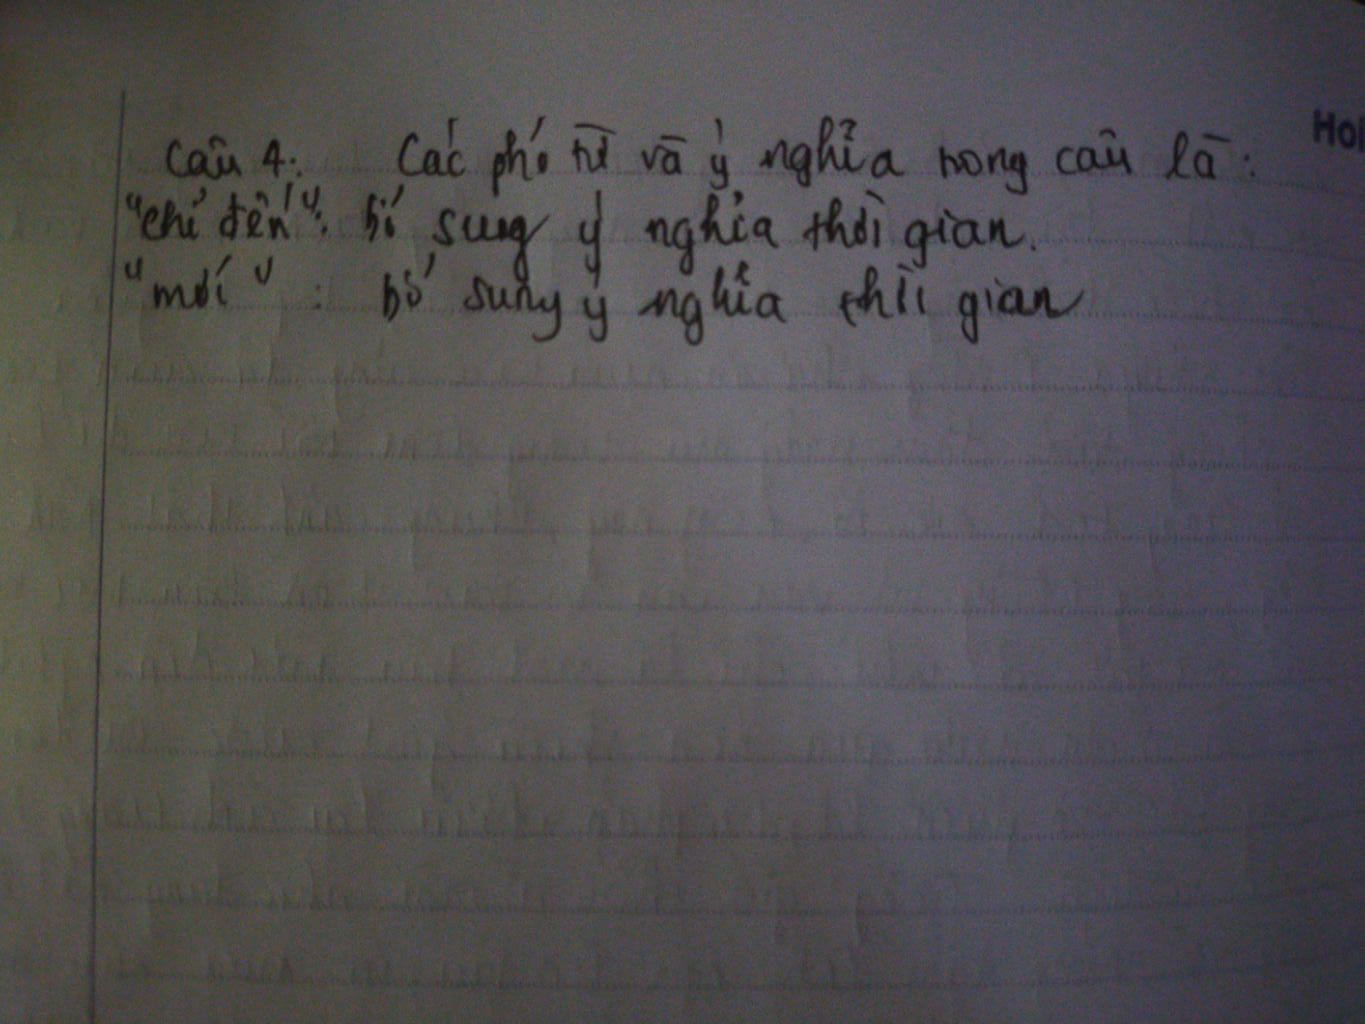 Câu 4: Các phó từ và ý nghĩa trong câu là:
"chỉ đến": bổ sung ý nghĩa thời gian.
"mới" : bổ sung ý nghĩa thời gian
Hol